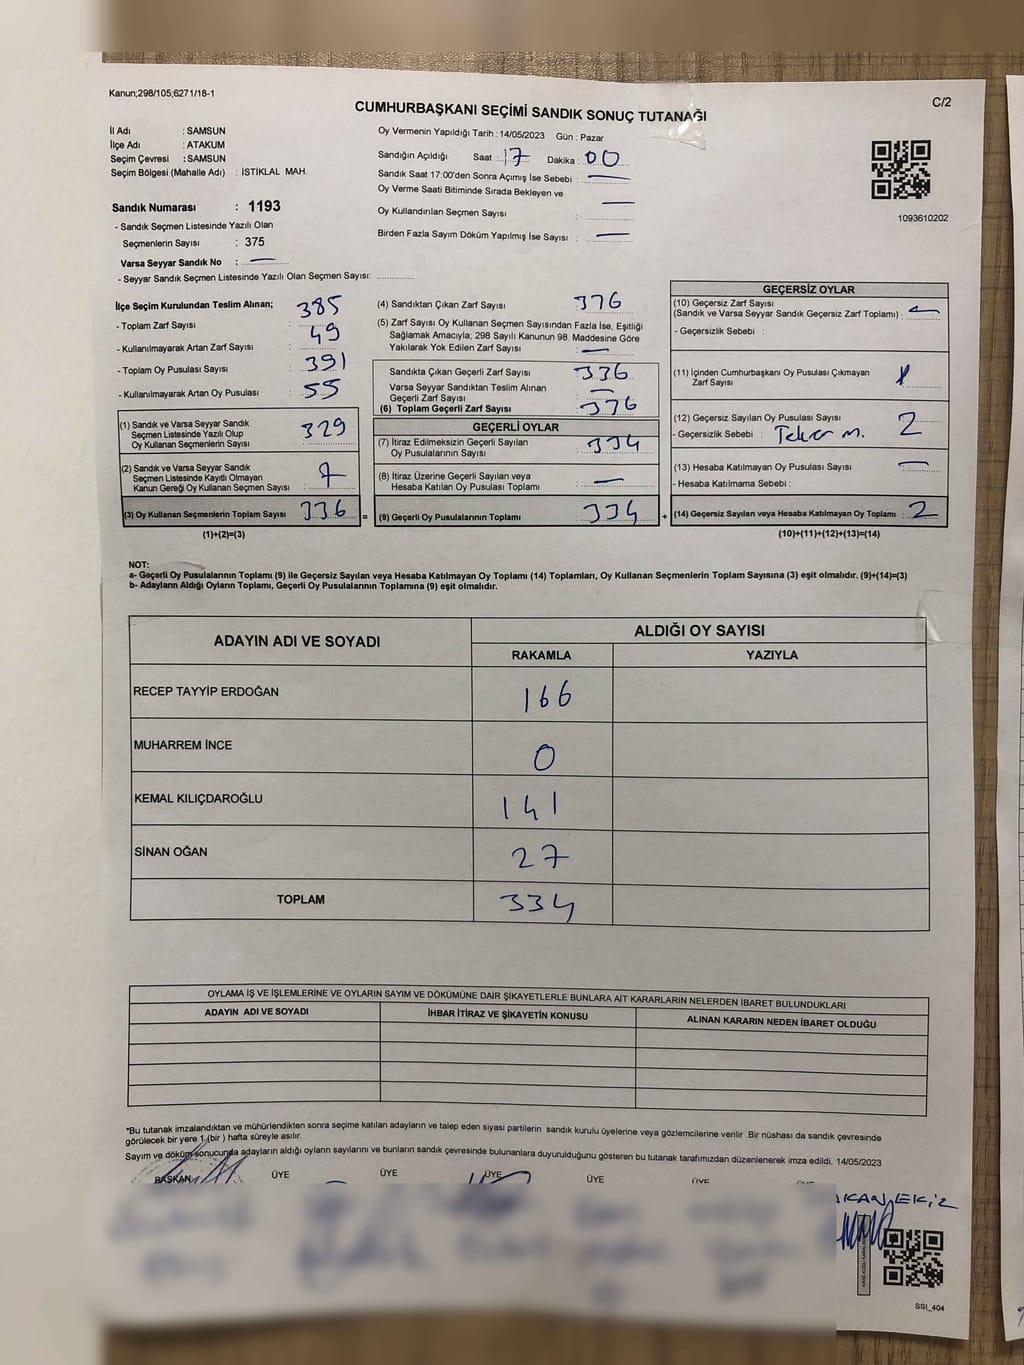 Kanun;298/105;6271/18-1
C/2
CUMHURBAŞKANI SEÇİMİ SANDIK SONUÇ TUTANAĞI
İl Adı : SAMSUN
İlçe Adı : ATAKUM
Seçim Çevresi : SAMSUN
Seçim Bölgesi (Mahalle Adı) : İSTİKLAL MAH.
Sandık Numarası : 1193
- Sandık Seçmen Listesinde Yazılı Olan
Seçmenlerin Sayısı : 375
Varsa Seyyar Sandık No : —
- Seyyar Sandık Seçmen Listesinde Yazılı Olan Seçmen Sayısı:
Oy Vermenin Yapıldığı Tarih : 14/05/2023 Gün : Pazar
Sandığın Açıldığı Saat : 17 Dakika : 00
Sandık Saat 17:00'den Sonra Açımış İse Sebebi : —
Oy Verme Saati Bitiminde Sırada Bekleyen ve —
Oy Kullandırılan Seçmen Sayısı :
Birden Fazla Sayım Döküm Yapılmış İse Sayısı : —
1093610202
İlçe Seçim Kurulundan Teslim Alınan;
- Toplam Zarf Sayısı : 385
- Kullanılmayarak Artan Zarf Sayısı : 49
- Toplam Oy Pusulası Sayısı : 391
- Kullanılmayarak Artan Oy Pusulası : 55
(1) Sandık ve Varsa Seyyar Sandık
Seçmen Listesinde Yazılı Olup
Oy Kullanan Seçmenlerin Sayısı : 329
(2) Sandık ve Varsa Seyyar Sandık
Seçmen Listesinde Kayıtlı Olmayan
Kanun Gereği Oy Kullanan Seçmen Sayısı : 7
(3) Oy Kullanan Seçmenlerin Toplam Sayısı : 336
(1)+(2)=(3)
=
(4) Sandıktan Çıkan Zarf Sayısı : 376
(5) Zarf Sayısı Oy Kullanan Seçmen Sayısından Fazla İse, Eşitliği
Sağlamak Amacıyla; 298 Sayılı Kanunun 98. Maddesine Göre
Yakılarak Yok Edilen Zarf Sayısı : —
Sandıkta Çıkan Geçerli Zarf Sayısı : 336
Varsa Seyyar Sandıktan Teslim Alınan
Geçerli Zarf Sayısı : —
(6) Toplam Geçerli Zarf Sayısı : 376
GEÇERLİ OYLAR
(7) İtiraz Edilmeksizin Geçerli Sayılan
Oy Pusulalarının Sayısı : 334
(8) İtiraz Üzerine Geçerli Sayılan veya
Hesaba Katılan Oy Pusulası Toplamı : —
(9) Geçerli Oy Pusulalarının Toplamı : 334
+
GEÇERSİZ OYLAR
(10) Geçersiz Zarf Sayısı
(Sandık ve Varsa Seyyar Sandık Geçersiz Zarf Toplamı) : —
- Geçersizlik Sebebi :
(11) İçinden Cumhurbaşkanı Oy Pusulası Çıkmayan
Zarf Sayısı :
(12) Geçersiz Sayılan Oy Pusulası Sayısı : 2
- Geçersizlik Sebebi :
(13) Hesaba Katılmayan Oy Pusulası Sayısı : —
- Hesaba Katılmama Sebebi :
(14) Geçersiz Sayılan veya Hesaba Katılmayan Oy Toplamı : 2
(10)+(11)+(12)+(13)=(14)
NOT:
a- Geçerli Oy Pusulalarının Toplamı (9) ile Geçersiz Sayılan veya Hesaba Katılmayan Oy Toplamı (14) Toplamları, Oy Kullanan Seçmenlerin Toplam Sayısına (3) eşit olmalıdır. (9)+(14)=(3)
b- Adayların Aldığı Oyların Toplamı, Geçerli Oy Pusulalarının Toplamına (9) eşit olmalıdır.
ADAYIN ADI VE SOYADI ALDIĞI OY SAYISI
RAKAMLA YAZIYLA
RECEP TAYYİP ERDOĞAN 166
MUHARREM İNCE 0
KEMAL KILIÇDAROĞLU 141
SİNAN OĞAN 27
TOPLAM 334
OYLAMA İŞ VE İŞLEMLERİNE VE OYLARIN SAYIM VE DÖKÜMÜNE DAİR ŞİKAYETLERLE BUNLARA AİT KARARLARIN NELERDEN İBARET BULUNDUKLARI
ADAYIN ADI VE SOYADI İHBAR İTİRAZ VE ŞİKAYETİN KONUSU ALINAN KARARIN NEDEN İBARET OLDUĞU
*Bu tutanak imzalandıktan ve mühürlendikten sonra seçime katılan adayların ve talep eden siyasi partilerin sandık kurulu üyelerine veya gözlemcilerine verilir .Bir nüshası da sandık çevresinde
görülecek bir yere 1 (bir ) hafta süreyle asılır.
Sayım ve döküm sonucunda adayların aldığı oyların sayılarını ve bunların sandık çevresinde bulunanlara duyurulduğunu gösteren bu tutanak tarafımızdan düzenlenerek imza edildi. 14/05/2023
BAŞKAN ÜYE ÜYE ÜYE ÜYE ÜYE ÜYE
EKİZ
SSI_404